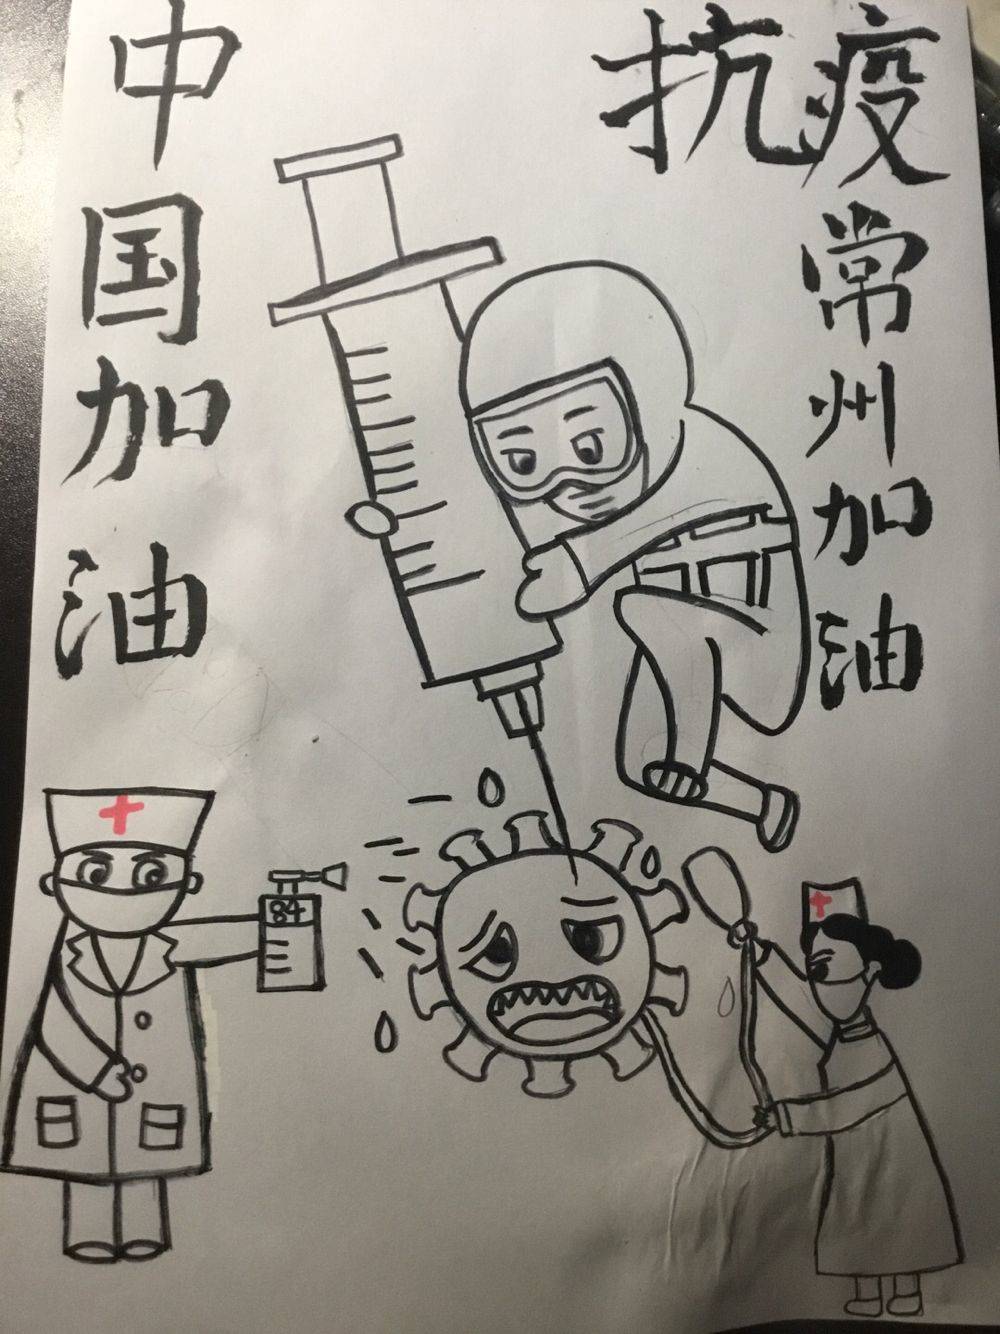 中国加油
抗疫
常州加油
84